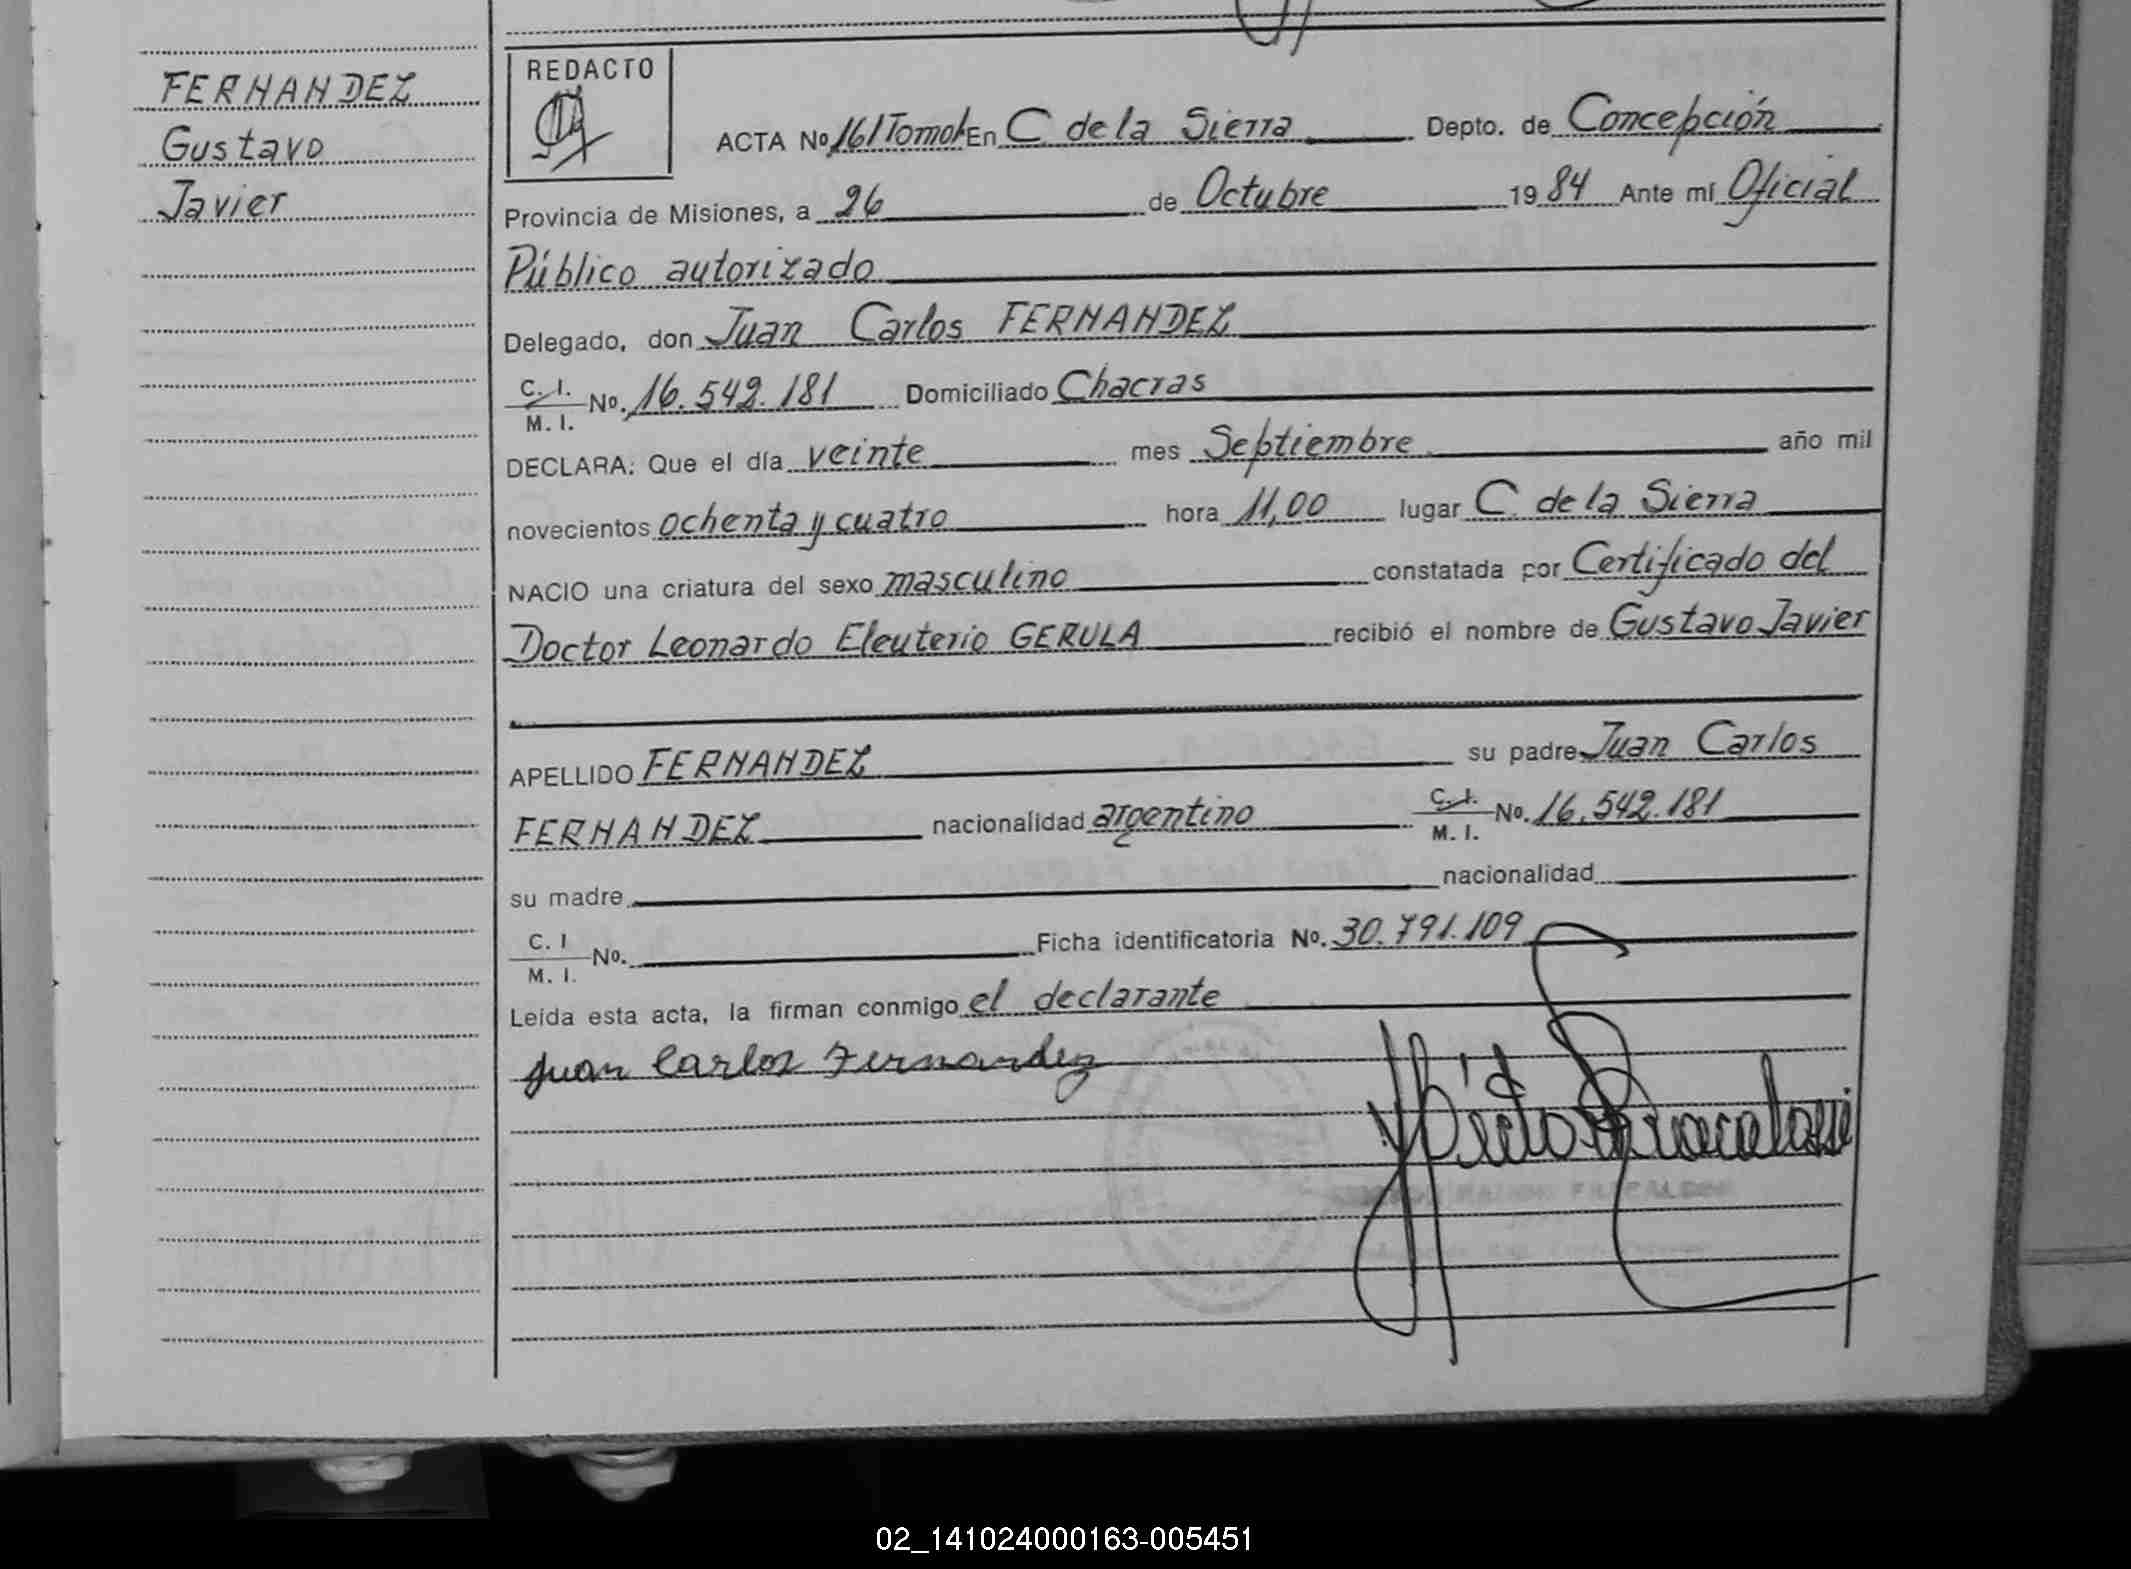 FERNANDEZ
Gustavo
Javier
REDACTO
ACTA No 161 Tomo I En C. de la Sierra Depto. de Concepción
Provincia de Misiones, a 26 de Octubre 1984 Ante mí Oficial
Público autorizado
Delegado, don Juan Carlos FERNANDEZ
C. I. M. I. No. 16.542.181 Domiciliado Chacras
DECLARA: Que el día veinte mes Septiembre año mil
novecientos ochenta y cuatro hora 11,00 lugar C. de la Sierra
NACIO una criatura del sexo masculino constatada por Certificado del
Doctor Leonardo Eleuterio GERULA recibió el nombre de Gustavo Javier
APELLIDO FERNANDEZ su padre Juan Carlos
FERNANDEZ nacionalidad argentino C. I. M. I. No. 16.542.181
su madre nacionalidad
C. I M. I. No. Ficha identificatoria No. 30.791.109
Leída esta acta, la firman conmigo el declarante
Juan Carlos Fernandez
02_141024000163-005451